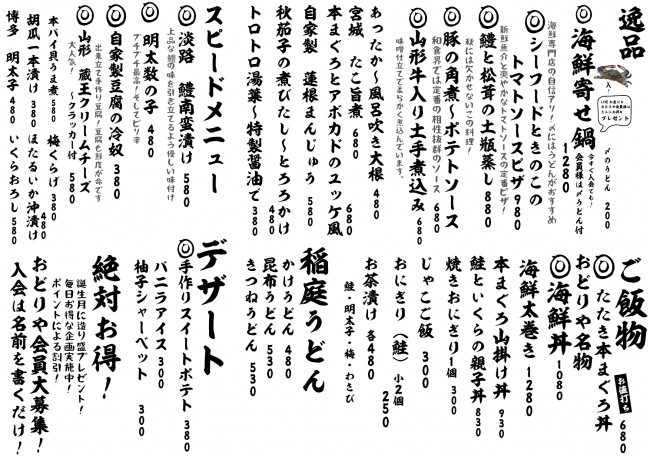 逸品
◎海鮮寄せ鍋 1280
今すぐ入会でも!
会員様は〆うどん付
〆のうどん 200
プレゼント
海鮮専門店の自信アリ!〆にはうどんがおすすめ
◎シーフードときのこの
トマトソースピザ 980
新鮮魚介と爽やかなトマトソースの定番ピザ!
◎鱧と松茸の土瓶蒸し 880
秋には欠かせないこの料理!
◎豚の角煮~ポテトソース 680
和食界では定番の相性抜群のソース
◎山形牛入り土手煮込み 680
味噌仕立てで柔らかく煮込んでいます。
あったか~風呂吹き大根 480
宮城 たこ旨煮 680
本まぐろとアボカドのユッケ風 680
自家製 蓮根まんじゅう 580
秋茄子の煮びたし~とろろかけ 380
トロトロ湯葉~特製醤油で 380
スピードメニュー
◎淡路 鱧南蛮漬け 580
上品な鱧の味を引き立てるよう優しい味付け
◎明太数の子 480
アチアチ最高!そしてピリ辛
◎自家製豆腐の冷奴 380
出来立て手作り豆腐!豆腐も鮮度が命です
◎山形 蔵王クリームチーズ
~クラッカー付 580
大人気!
本バイ貝うま煮 580 梅くらげ 380
胡瓜一本漬け 380 ほたるいか沖漬け 480
博多 明太子 480 いくらおろし 580
ご飯物
お値打ち
◎たたき本まぐろ丼 680
おどりや名物
◎海鮮丼 1080
海鮮太巻き 1280
本まぐろ山掛け丼 930
鮭といくらの親子丼 830
焼きおにぎり1個 300
じゃこご飯 300
おにぎり(鮭)小2個 250
お茶漬け 各480
鮭・明太子・梅・わさび
稲庭うどん
かけうどん 480
昆布うどん 530
きつねうどん 530
デザート
◎手作りスイートポテト 380
バニラアイス 300
柚子シャーベット 300
絶対お得!
誕生月に造り盛プレゼント!
毎日お得な企画実施中!
ポイントによる割引!
おどりや会員大募集!
入会は名前を書くだけ!